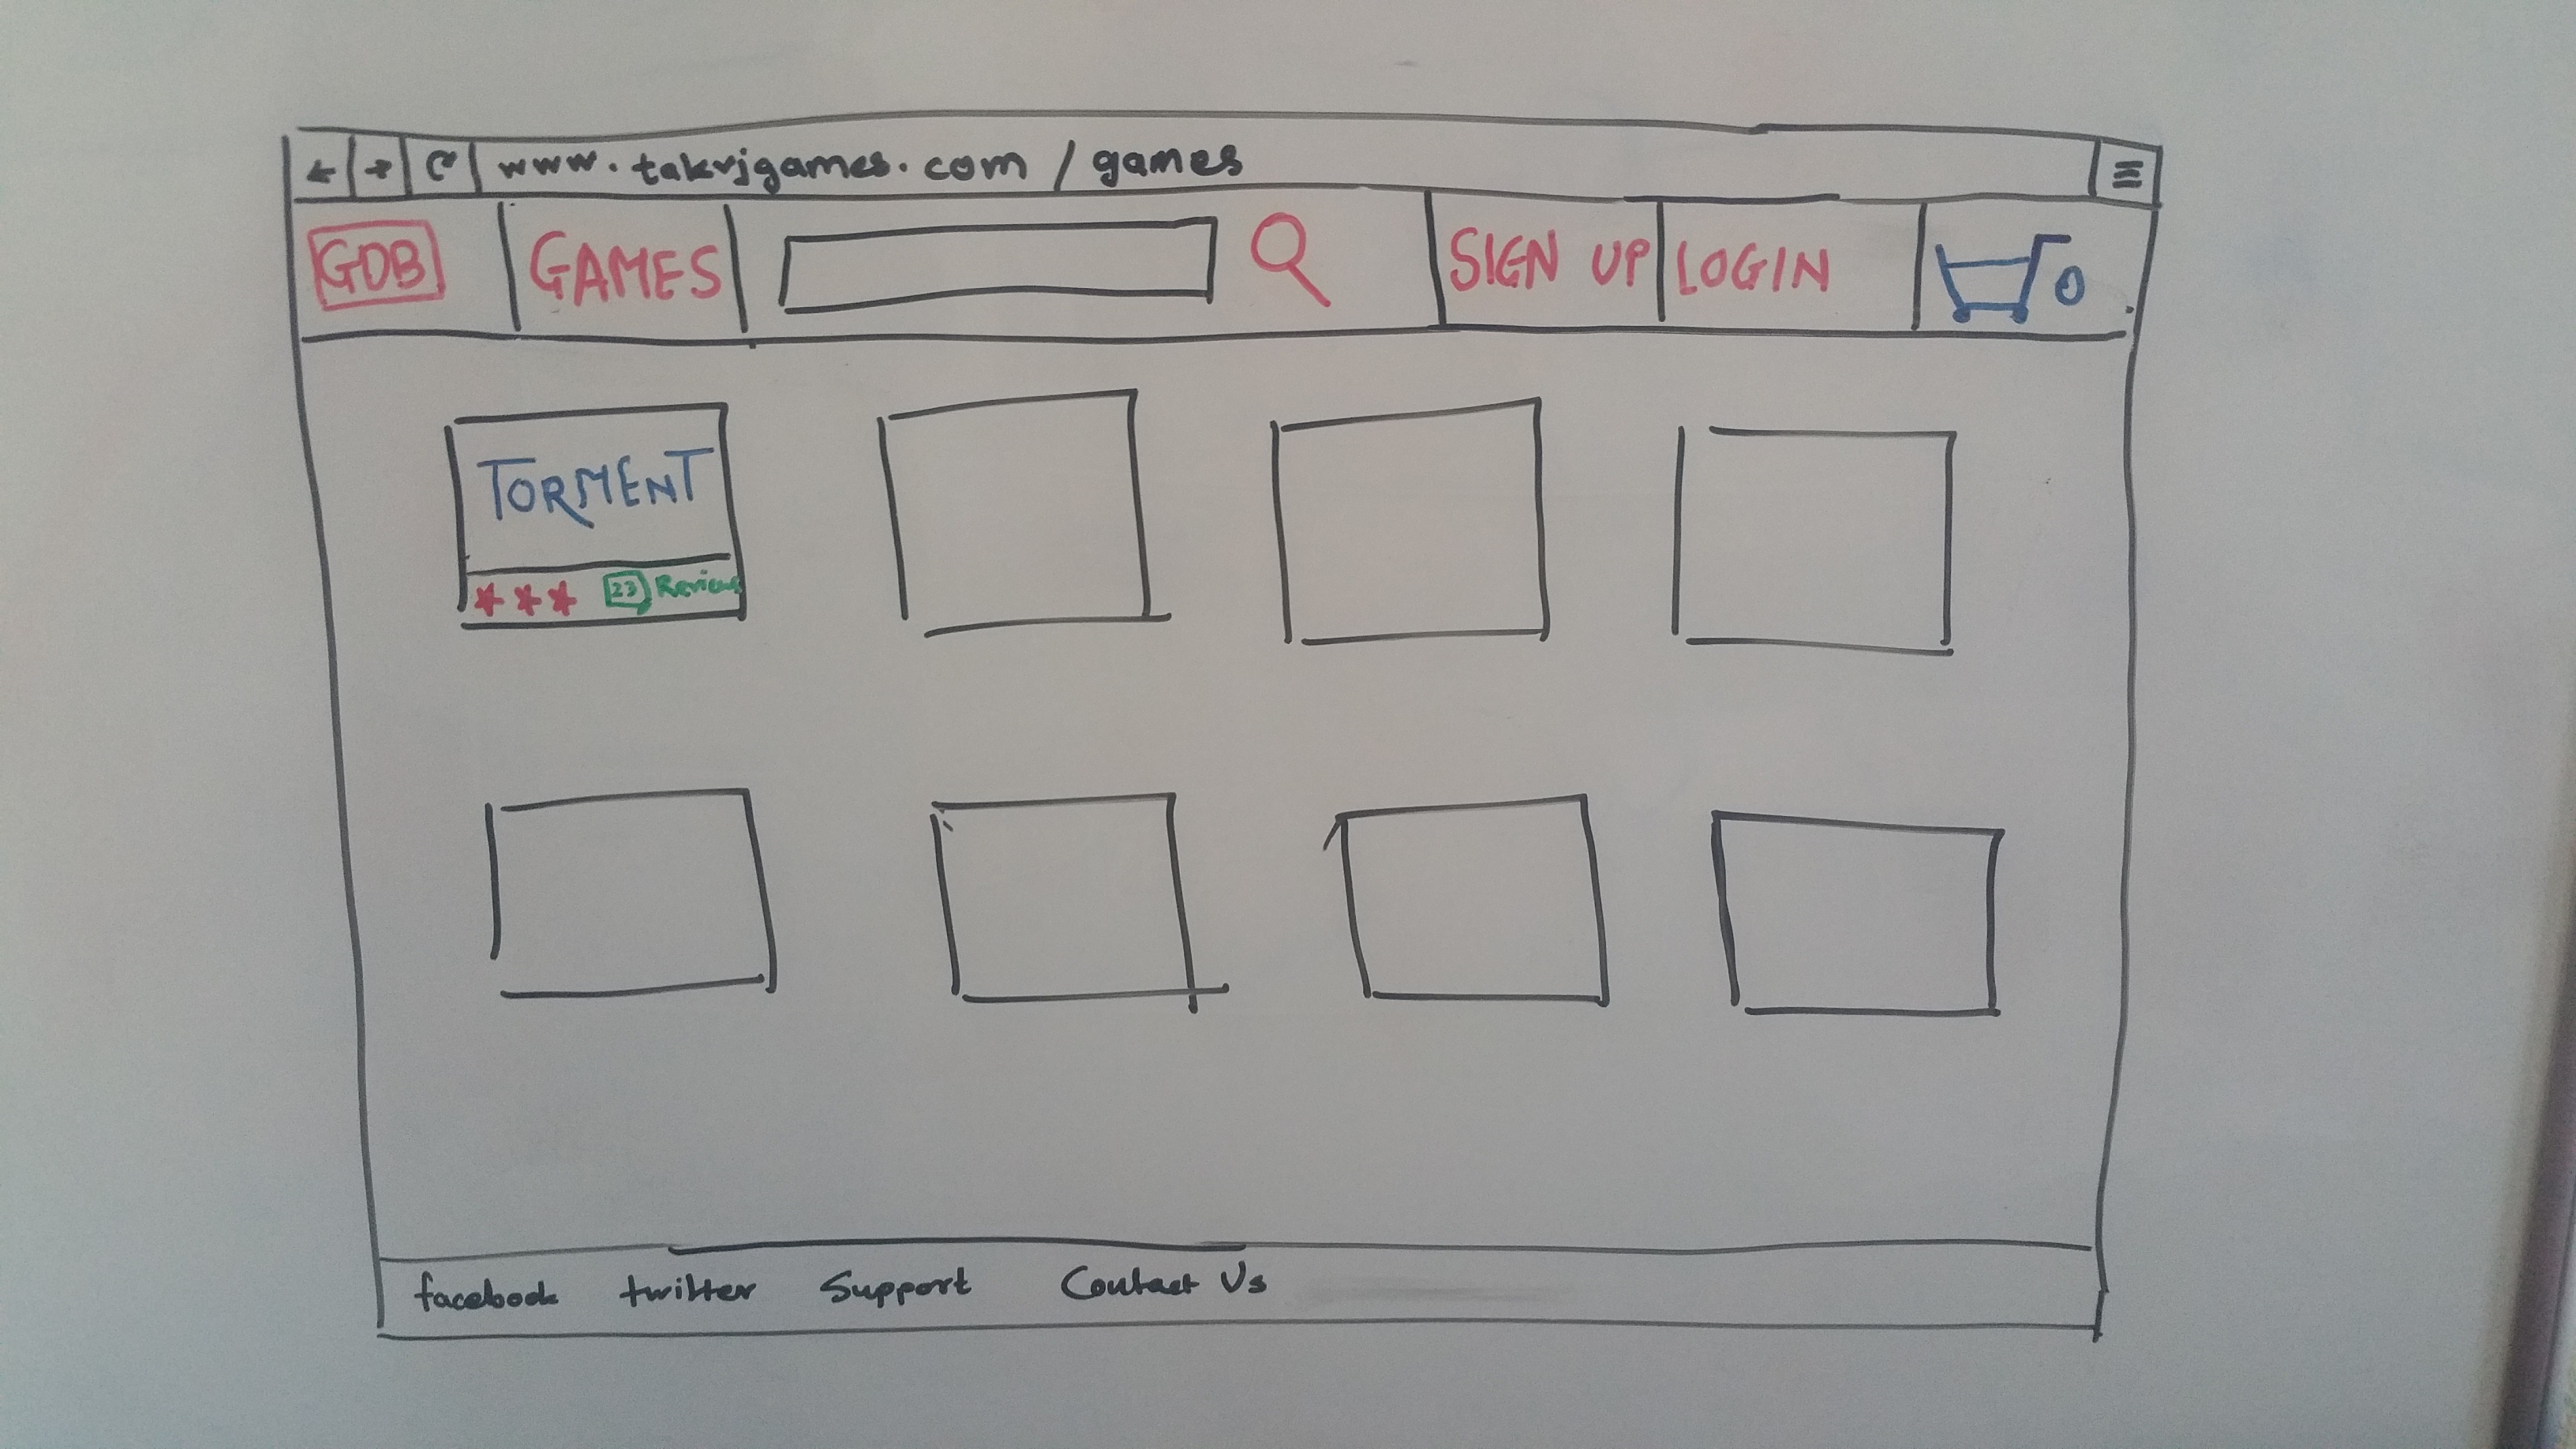 www.takvjgames.com / games
GDB GAMES SIGN UP LOGIN 0
TORMENT
23 Reviews
facebook twitter Support Contact Us